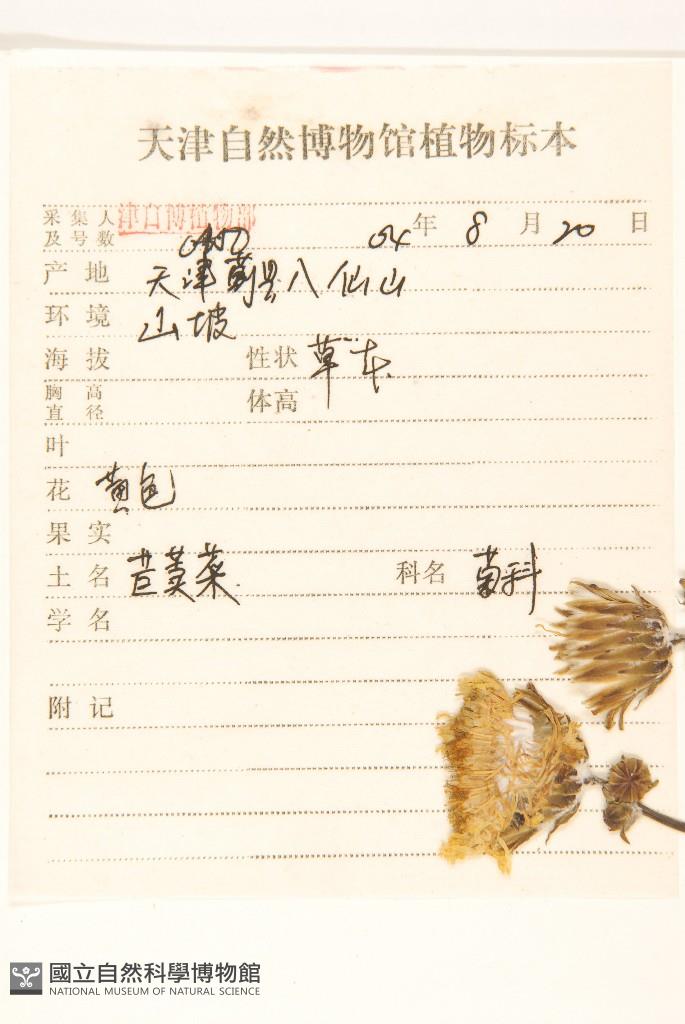 天津自然博物馆植物标本
采集人及号数 津自博植物部 04年8月20日
产地 天津蓟县八仙山
环境 山坡
海拔 性状 草本
胸高直径 体高
叶
花 黄色
果实
土名 苣荬菜 科名 菊科
学名
附记
國立自然科學博物館
NATIONAL MUSEUM OF NATURAL SCIENCE